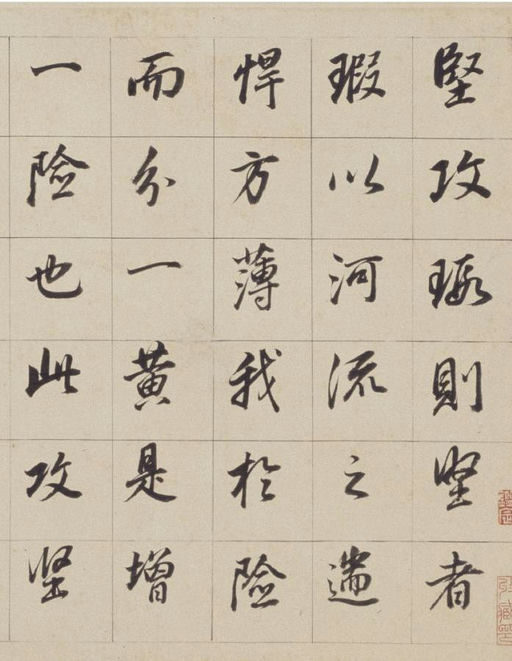 堅攻瑕則堅者
瑕以河流之遄
悍方薄我於險
而分一黃是增
一險也此攻堅